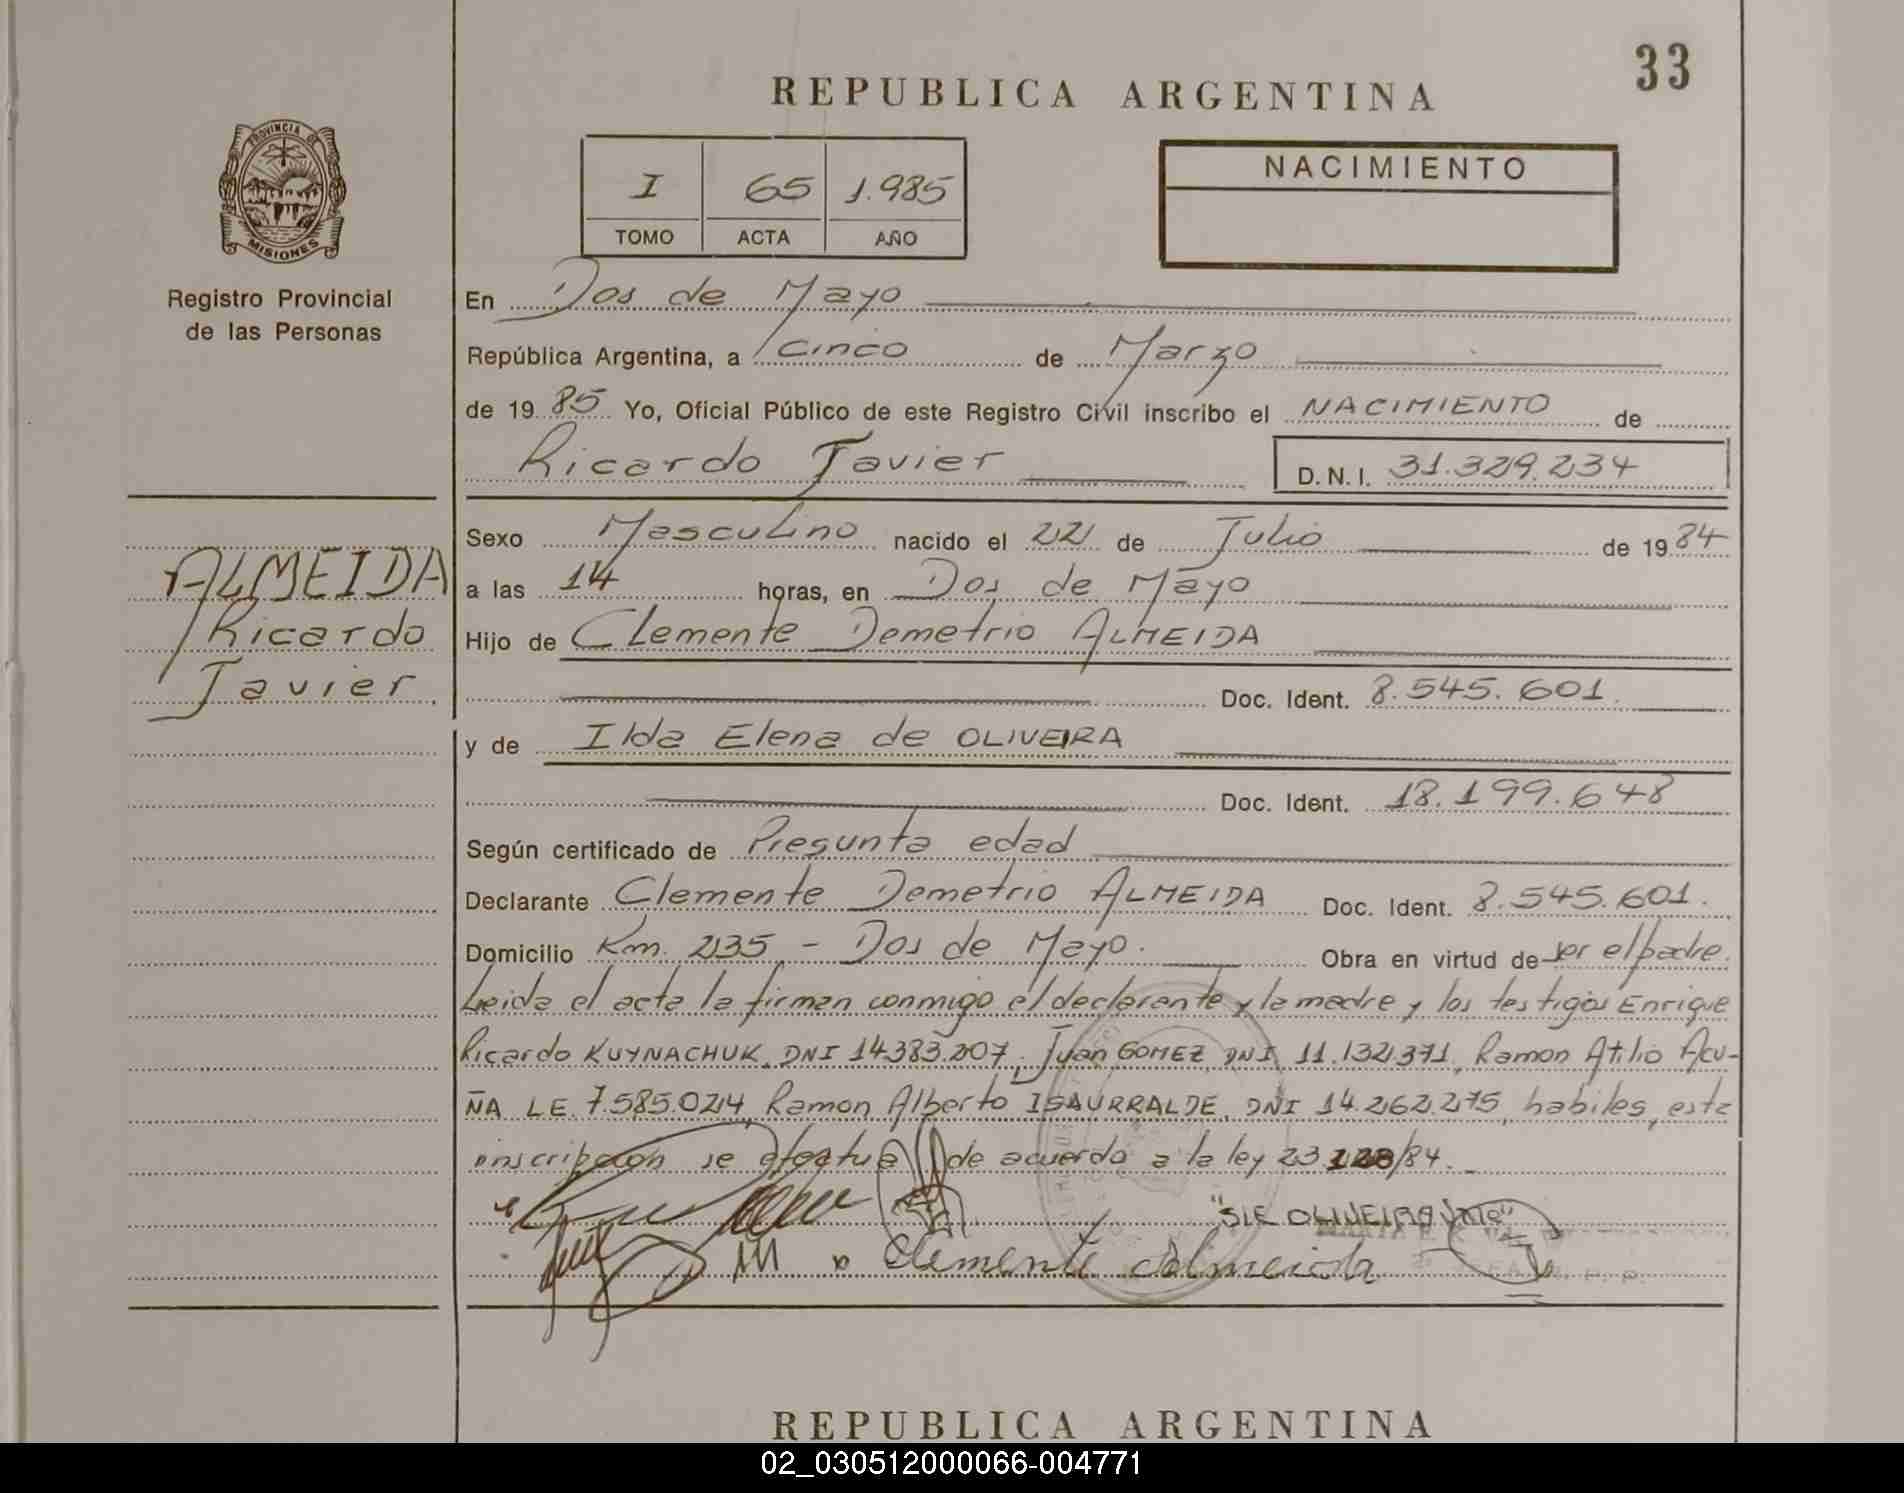 33
REPUBLICA ARGENTINA
PROVINCIA DE
MISIONES
Registro Provincial
de las Personas
I 65 1.985
TOMO ACTA AÑO
NACIMIENTO
En Dos de Mayo
República Argentina, a cinco de Marzo
de 19 85 Yo, Oficial Público de este Registro Civil inscribo el NACIMIENTO de
Ricardo Javier D.N.I. 31.329.234
ALMEIDA
Ricardo
Javier
Sexo Masculino nacido el 22 de Julio de 19 84
a las 14 horas, en Dos de Mayo
Hijo de Clemente Demetrio ALMEIDA
Doc. Ident. 8.545.601.
y de Ilda Elena de OLIVEIRA
Doc. Ident. 18.199.648
Según certificado de Presunta edad
Declarante Clemente Demetrio ALMEIDA Doc. Ident. 8.545.601.
Domicilio Km. 235 - Dos de Mayo. Obra en virtud de ser el padre.
Leida el acta la firman conmigo el declarante y la madre y los testigos Enrique
Ricardo KUYNACHUK, DNI 14.383.207, Juan GOMEZ, DNI 11.132.371, Ramon Atilio ACU-
ÑA LE. 7.585.024, Ramon Alberto ISAURRALDE, DNI 14.262.275, habiles, esta
inscripcion se efectua de acuerdo a la ley 23.128/84.
Clemente Almeida
REPUBLICA ARGENTINA
02_030512000066-004771